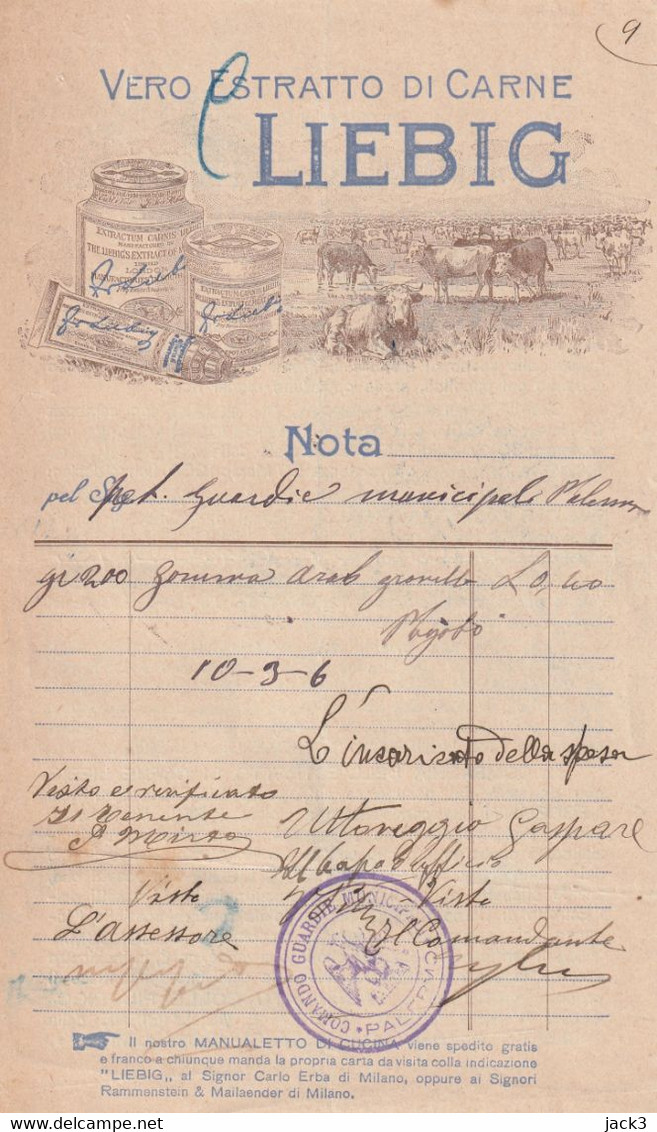 9
VERO ESTRATTO DI CARNE
LIEBIG
EXTRACTUM CARNIS LIEBIG
MANUFACTURED BY
THE LIEBIG'S EXTRACT OF
Nota
pel Sig. Guardie municipali Palermo
gr 200 gomma arab L 0,40
10-3-6
L'incaricato della spesa
Visto e verificato
Il Tenente
Gaspare
Il Capo d'ufficio
Visto Visto
L'assessore Il Comandante
COMANDO GUARDIE MUNICIPALI
PALERMO
Il nostro MANUALETTO DI CUCINA viene spedito gratis
e franco a chiunque manda la propria carta da visita colla indicazione
"LIEBIG„ al Signor Carlo Erba di Milano, oppure ai Signori
Rammenstein & Mailaender di Milano.
delcampe.net
jack3